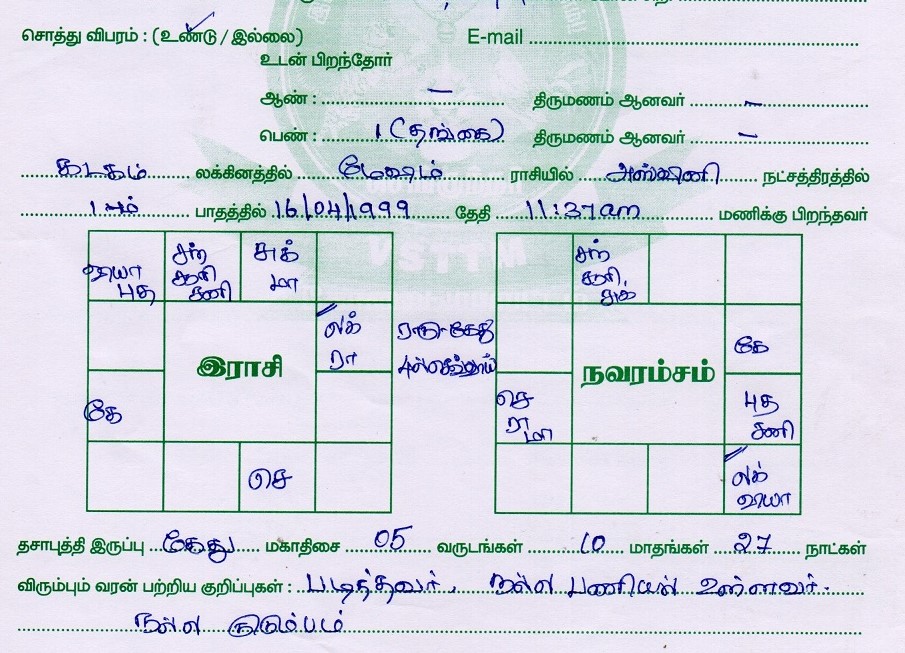 சொத்து விபரம் : (உண்டு / இல்லை) E-mail
உடன் பிறந்தோர்
ஆண் : – திருமணம் ஆனவர் –
பெண் : 1 (தங்கை) திருமணம் ஆனவர் –
கடகம் லக்கினத்தில் மேஷம் ராசியில் அஸ்வினி நட்சத்திரத்தில்
1ம் பாதத்தில் 16/04/1999 தேதி 11:37am மணிக்கு பிறந்தவர்
வியா புத
சந் சூரி சனி
சுக் மா
லக் ரா
ராகு-கேது
இராசி
கே
செ
சந் சூரி சுக்
கே
நவரம்சம்
செ ரா மா
புத சனி
லக் வியா
தசாபுத்தி இருப்பு கேது மகாதிசை 05 வருடங்கள் 10 மாதங்கள் 27 நாட்கள்
விரும்பும் வரன் பற்றிய குறிப்புகள் : படித்தவர், நல்ல பணியில் உள்ளவர்.
நல்ல குடும்பம்